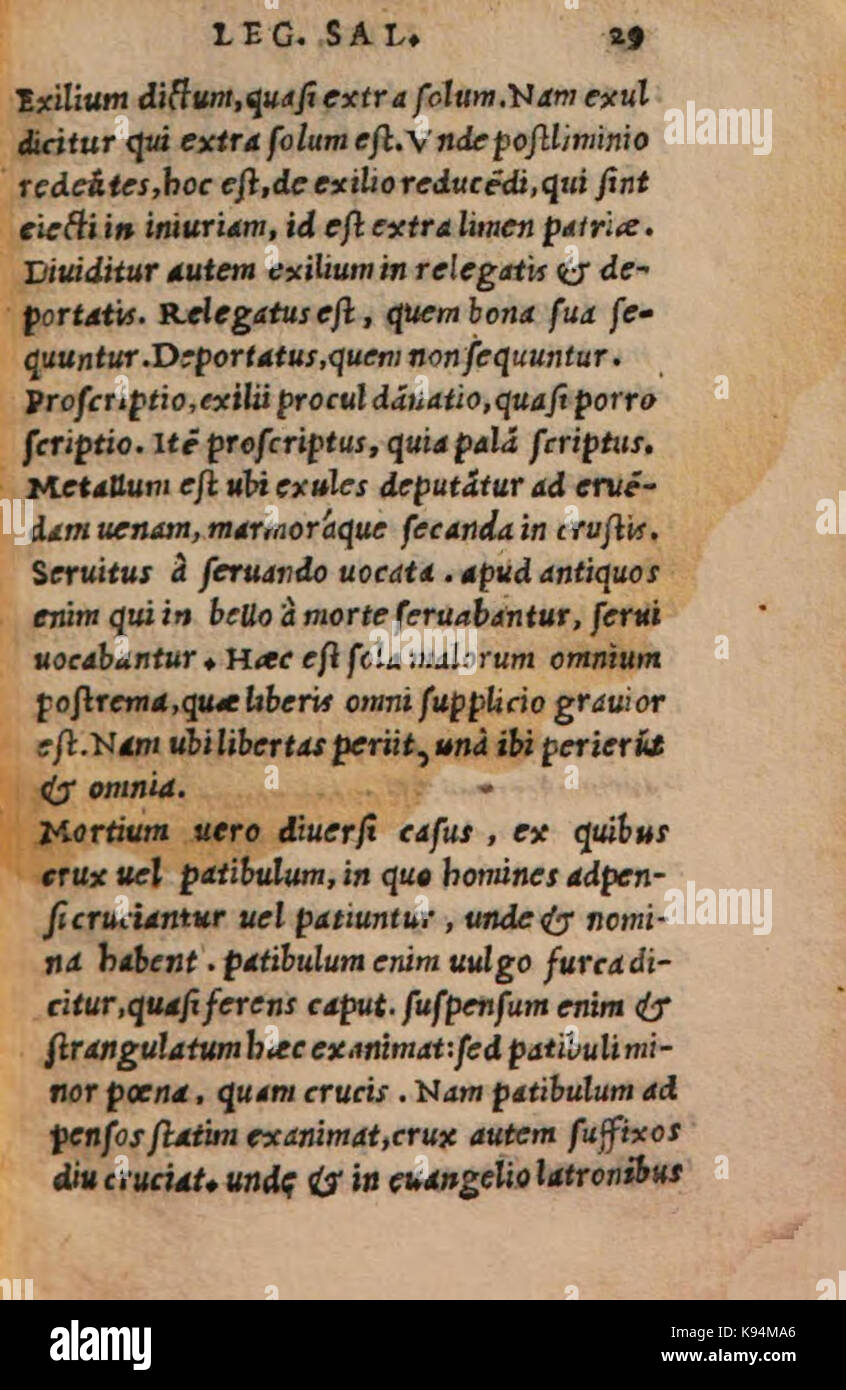 LEG. SAL. 29
Exilium dictum, quasi extra solum. Nam exul
dicitur qui extra solum est. Vnde postliminio
redeũtes, hoc est, de exilio reducẽdi, qui sint
eiecti in iniuriam, id est extra limen patriæ.
Diuiditur autem exilium in relegatis & de-
portatis. Relegatus est, quem bona sua se-
quuntur. Deportatus, quem non sequuntur.
Proscriptio, exilii procul dãnatio, quasi porro
scriptio. Itẽ proscriptus, quia palã scriptus.
Metallum est ubi exules deputãtur ad eruẽ-
dam uenam, marmoráque secanda in crustis.
Seruitus à seruando uocata. apud antiquos
enim qui in bello à morte seruabantur, serui
uocabantur. Hæc est sola malorum omnium
postrema, quæ liberis omni supplicio grauior
est. Nam ubi libertas periit, unà ibi perierũt
& omnia.
Mortium uero diuersi casus, ex quibus
crux uel patibulum, in quo homines adpen-
si cruciantur uel patiuntur, unde & nomi-
na habent. patibulum enim uulgo furca di-
citur, quasi ferens caput. suspensum enim &
strangulatum hæc exanimat: sed patibuli mi-
nor pœna, quam crucis. Nam patibulum ad
pensos statim exanimat, crux autem suffixos
diu cruciat. undę & in euangelio latronibus
alamy
Image ID: K94MA6
www.alamy.com